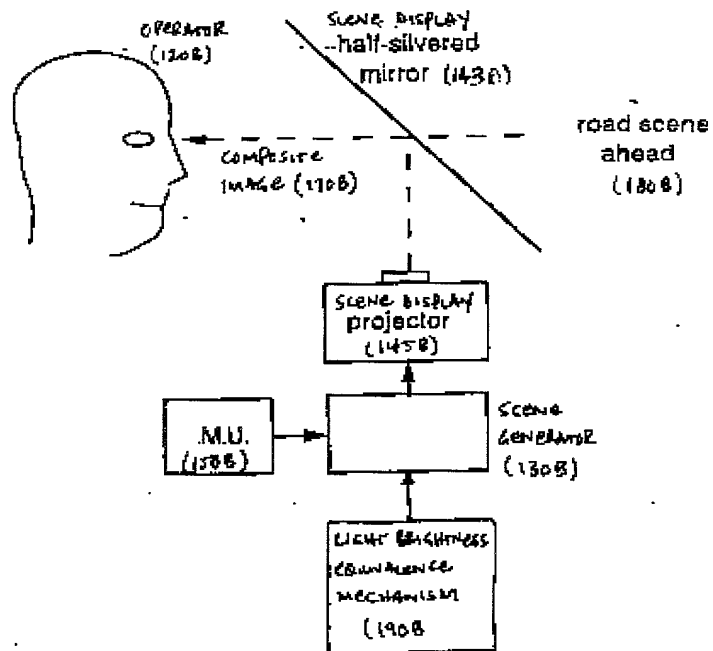 OPERATOR
(120B)
SCENE DISPLAY
half-silvered
mirror (143B)
road scene
ahead
(180B)
COMPOSITE
IMAGE (170B)
SCENE DISPLAY
projector
(145B)
M.U.
(150B)
SCENE
GENERATOR
(130B)
LIGHT BRIGHTNESS
EQUIVALENCE
MECHANISM
(190B